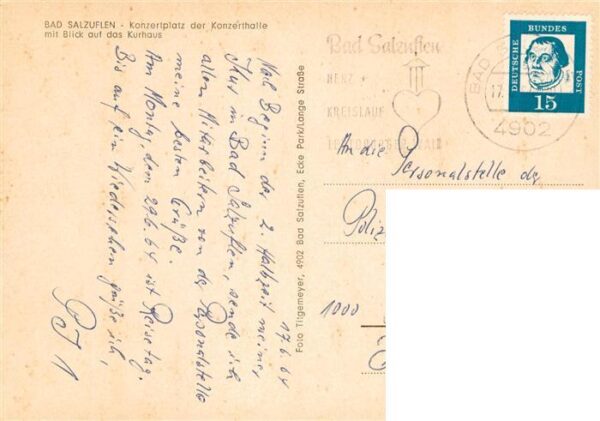 BAD SALZUFLEN - Konzertplatz der Konzerthalle
mit Blick auf das Kurhaus
17.6.64
Nach Beginn der 2. Halbzeit meiner
Kur in Bad Salzuflen, sende ich
allen Mitarbeitern von der Personalstelle
meine besten Grüße.
Am Montag, dem 29.6.64 ist Reisetag.
Bis auf ein Wiedersehen grüße ich,
Foto Tilgemeyer, 4902 Bad Salzuflen, Ecke Park/Lange Straße
Bad Salzuflen
HERZ +
KREISLAUF
BAD
17.
4902
DEUTSCHE BUNDES POST
15
An die Personalstelle der
Poliz
1000